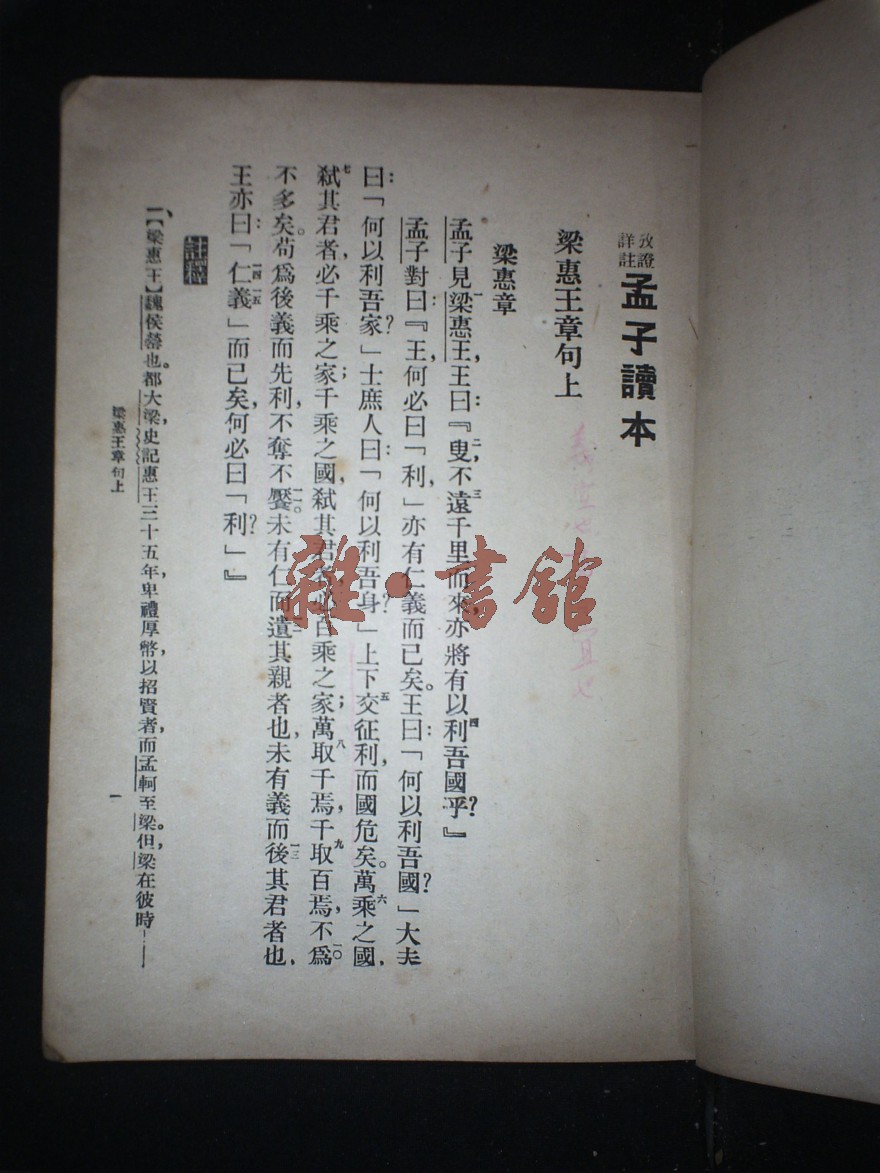 攷證
詳註
孟子讀本
梁惠王章句上
梁惠章
孟子見梁惠王,王曰:『叟,不遠千里而來,亦將有以利吾國乎?』
孟子對曰:『王,何必曰「利,」亦有仁義而已矣。王曰:「何以利吾國?」大夫
曰:「何以利吾家?」士庶人曰:「何以利吾身?」上下交征利,而國危矣。萬乘之國,
弒其君者,必千乘之家;千乘之國,弒其君者,必百乘之家;萬取千焉,千取百焉,不爲
不多矣。苟爲後義而先利,不奪不饜。未有仁而遺其親者也,未有義而後其君者也,
王亦曰:「仁義」而已矣,何必曰「利?」』
一、【梁惠王】魏侯罃也。都大梁,史記惠王三十五年,卑禮厚幣,以招賢者,而孟軻至梁。但,梁在彼時——
梁惠王章句上
一
雜·書館